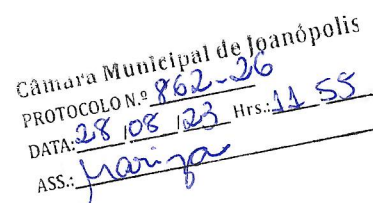 Câmara Municipal de Joanópolis
PROTOCOLO N.º 862-26
DATA: 28/08/23 Hrs.: 11 55
ASS.: Mariza